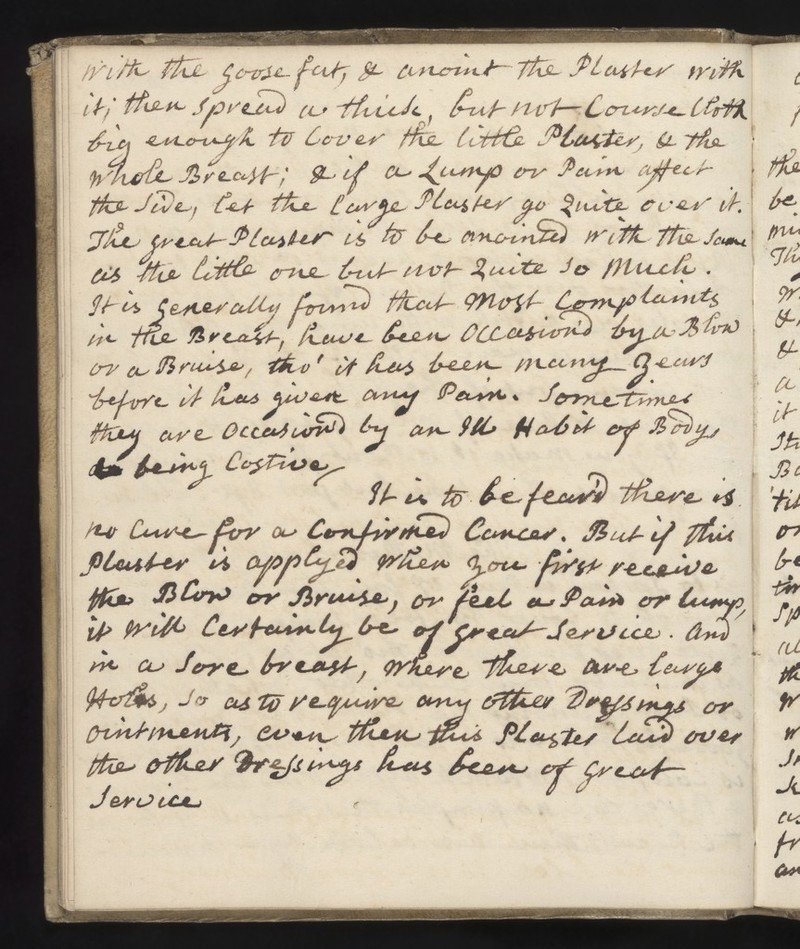 with the goose fat, & anoint the Plaster with
it; then spread a thick, but not Course Cloth
big enough to Cover the little Plaster, & the
whole Breast; & if a Lump or Pain affect
the Side, let the large Plaster go Quite over it.
The great Plaster is to be anointed with the same
as the little one but not Quite so Much.
It is generally found that Most Complaints
in the Breast, have been Occasion'd by a Blow
or a Bruise, tho' it has been many Years
before it has given any Pain. Sometimes
they are Occasion'd by an Ill Habit of Body,
being Costive
It is to be fear'd there is
no Cure for a Confirmed Cancer. But if this
Plaster is applyed when you first receive
the Blow or Bruise, or feel a Pain or lump,
it will Certainly be of great Service. And
in a Sore breast, where there are large
Holes, so as to require any other Dressings or
ointments, even then this Plaster laid over
the other Dressings has been of great
Service
the
be
Th
&
a
it
or
be
as